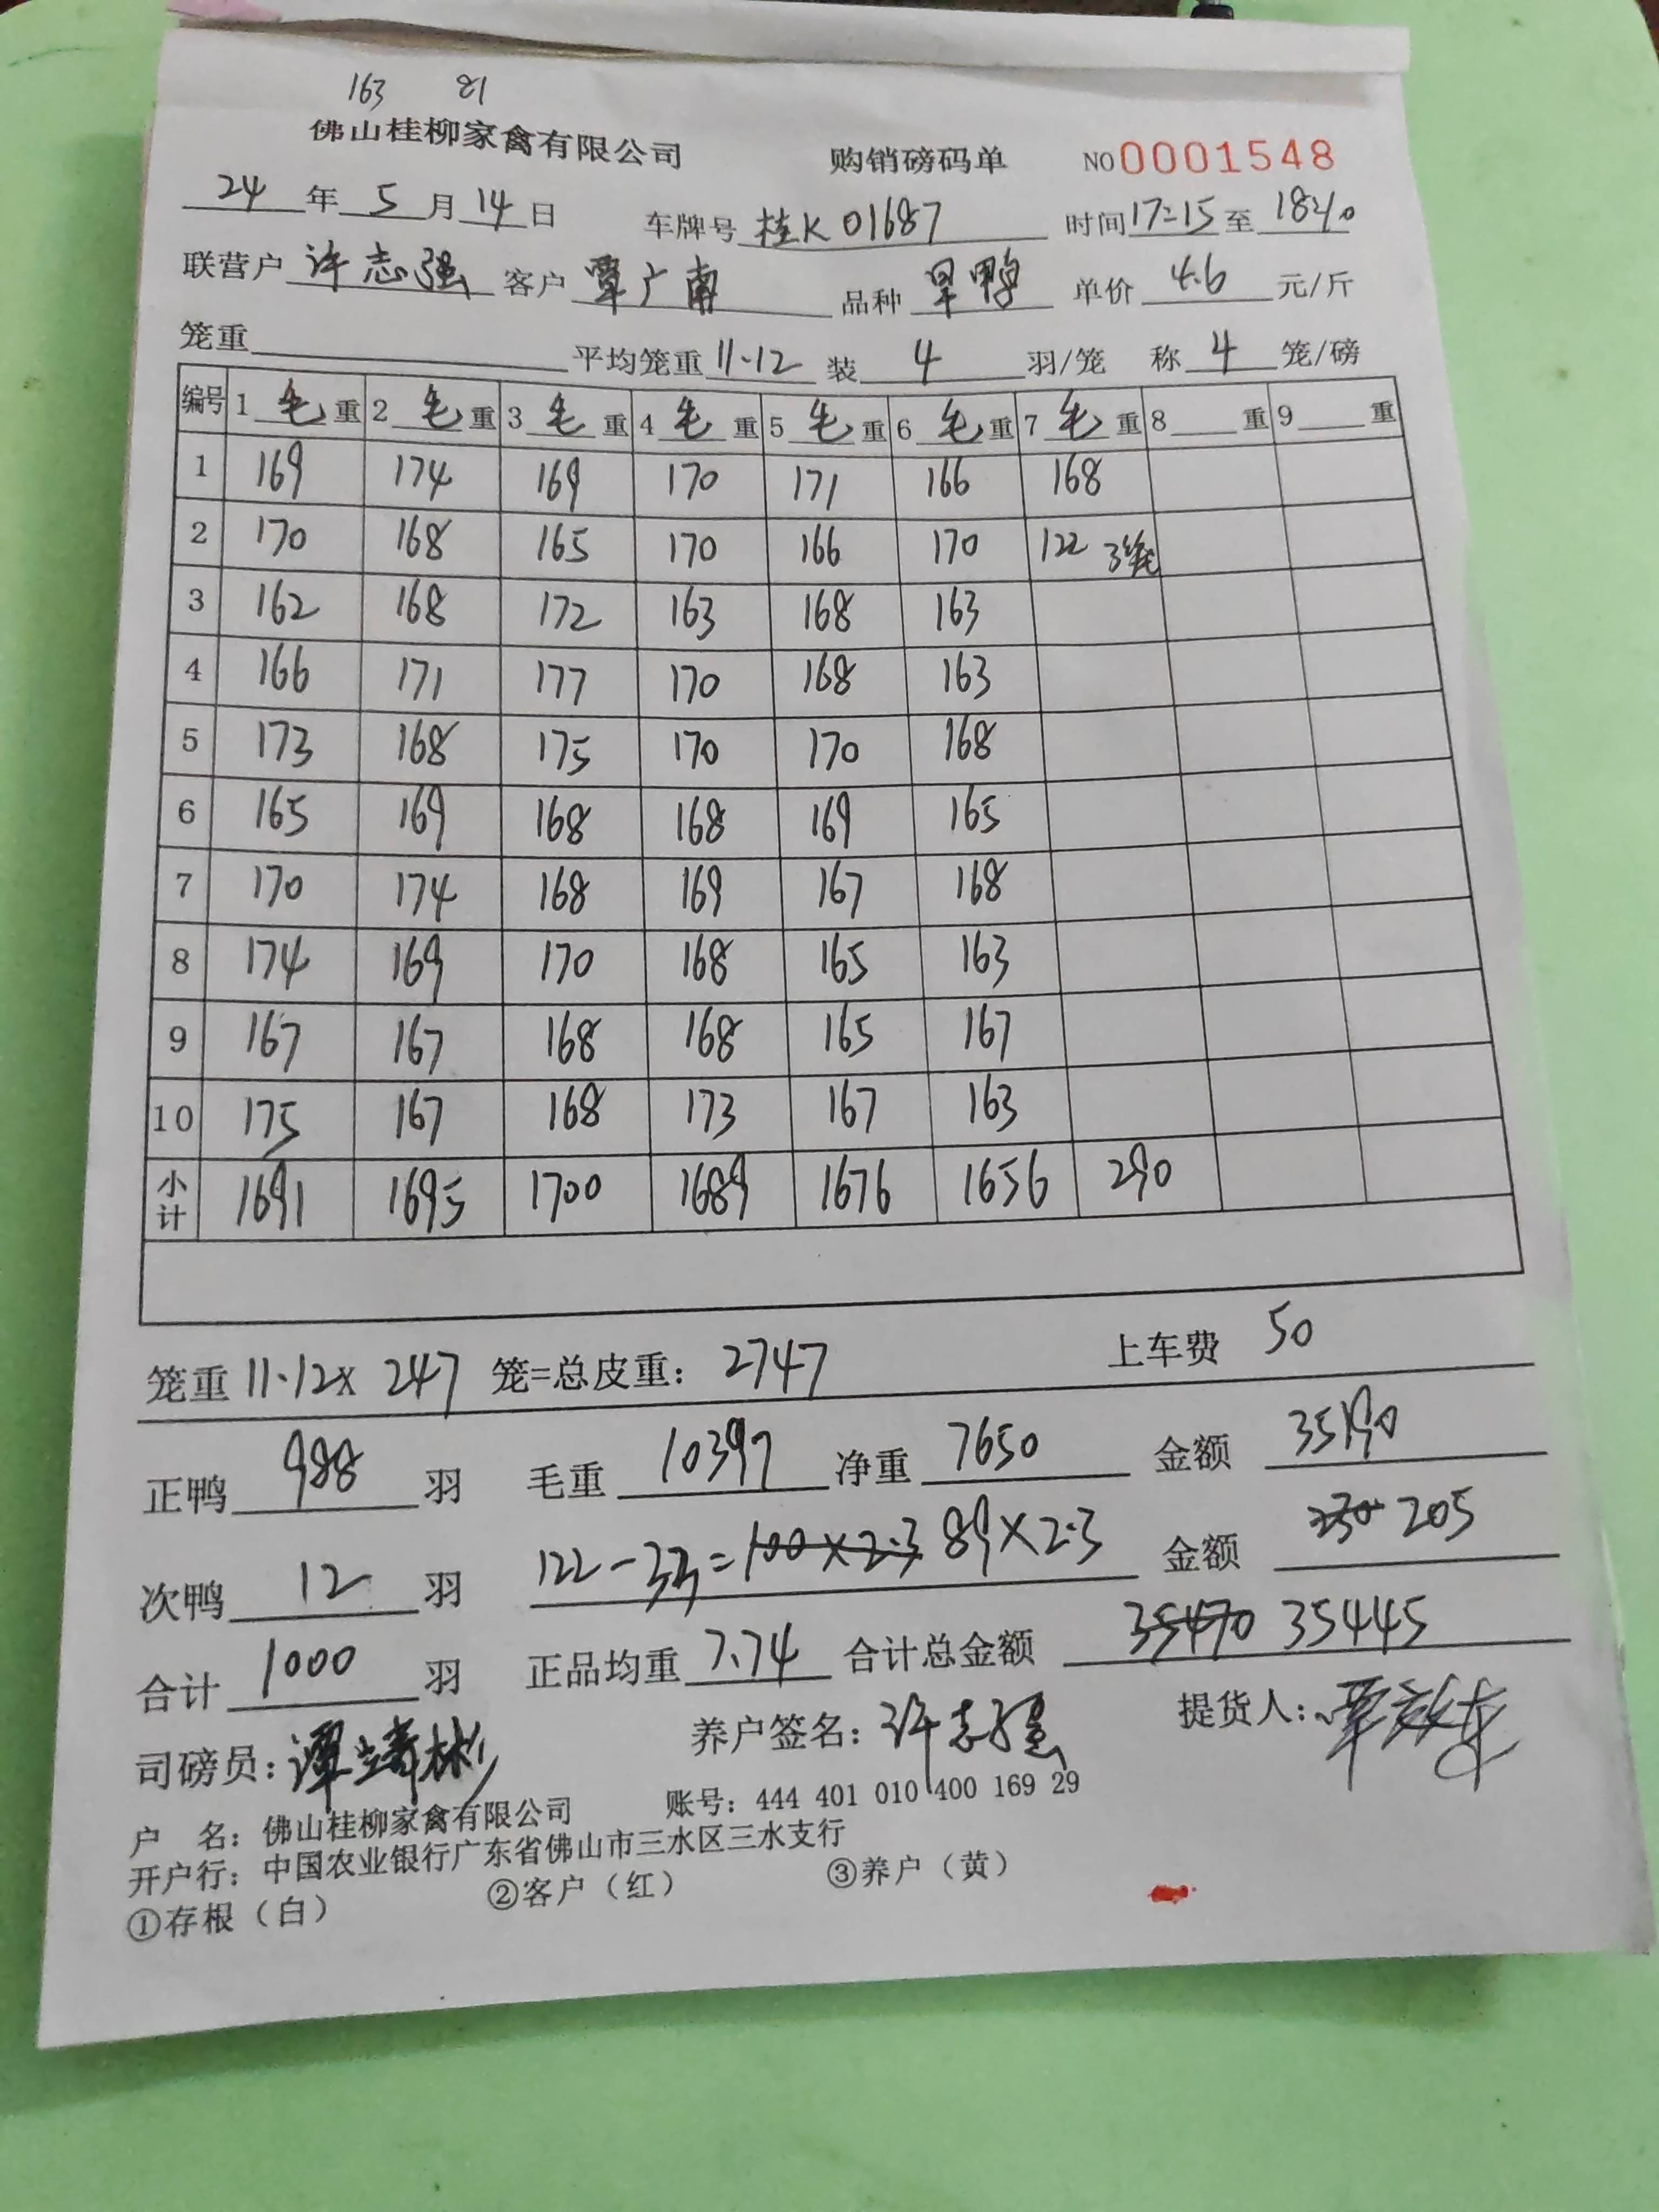 163 81
佛山桂柳家禽有限公司 购销磅码单 NO 0001548
24 年 5 月 14 日 车牌号 桂K 01687 时间 17:15 至 18:40
联营户 许志强 客户 覃广南 品种 旱鸭 单价 4.6 元/斤
笼重 平均笼重 11.12 装 4 羽/笼 称 4 笼/磅
编号 1 毛 重 2 毛 重 3 毛 重 4 毛 重 5 毛 重 6 毛 重 7 毛 重 8 重 9 重
1 169 174 169 170 171 166 168
2 170 168 165 170 166 170 122 3笼
3 162 168 172 163 168 163
4 166 171 177 170 168 163
5 173 168 175 170 170 168
6 165 169 168 168 169 165
7 170 174 168 169 167 168
8 174 169 170 168 165 163
9 167 167 168 168 165 167
10 175 167 168 173 167 163
小计 1691 1695 1700 1689 1676 1656 290
笼重 11.12 x 247 笼=总皮重: 2747 上车费 50
正鸭 988 羽 毛重 10397 净重 7650 金额 35190
次鸭 12 羽 122-33=100×2.3 89×2.3 金额 230 205
合计 1000 羽 正品均重 7.74 合计总金额 35470 35445
司磅员: 养户签名: 许志强 提货人:
户 名: 佛山桂柳家禽有限公司 账号: 444 401 010 400 169 29
开户行: 中国农业银行广东省佛山市三水区三水支行
①存根(白) ②客户(红) ③养户(黄)